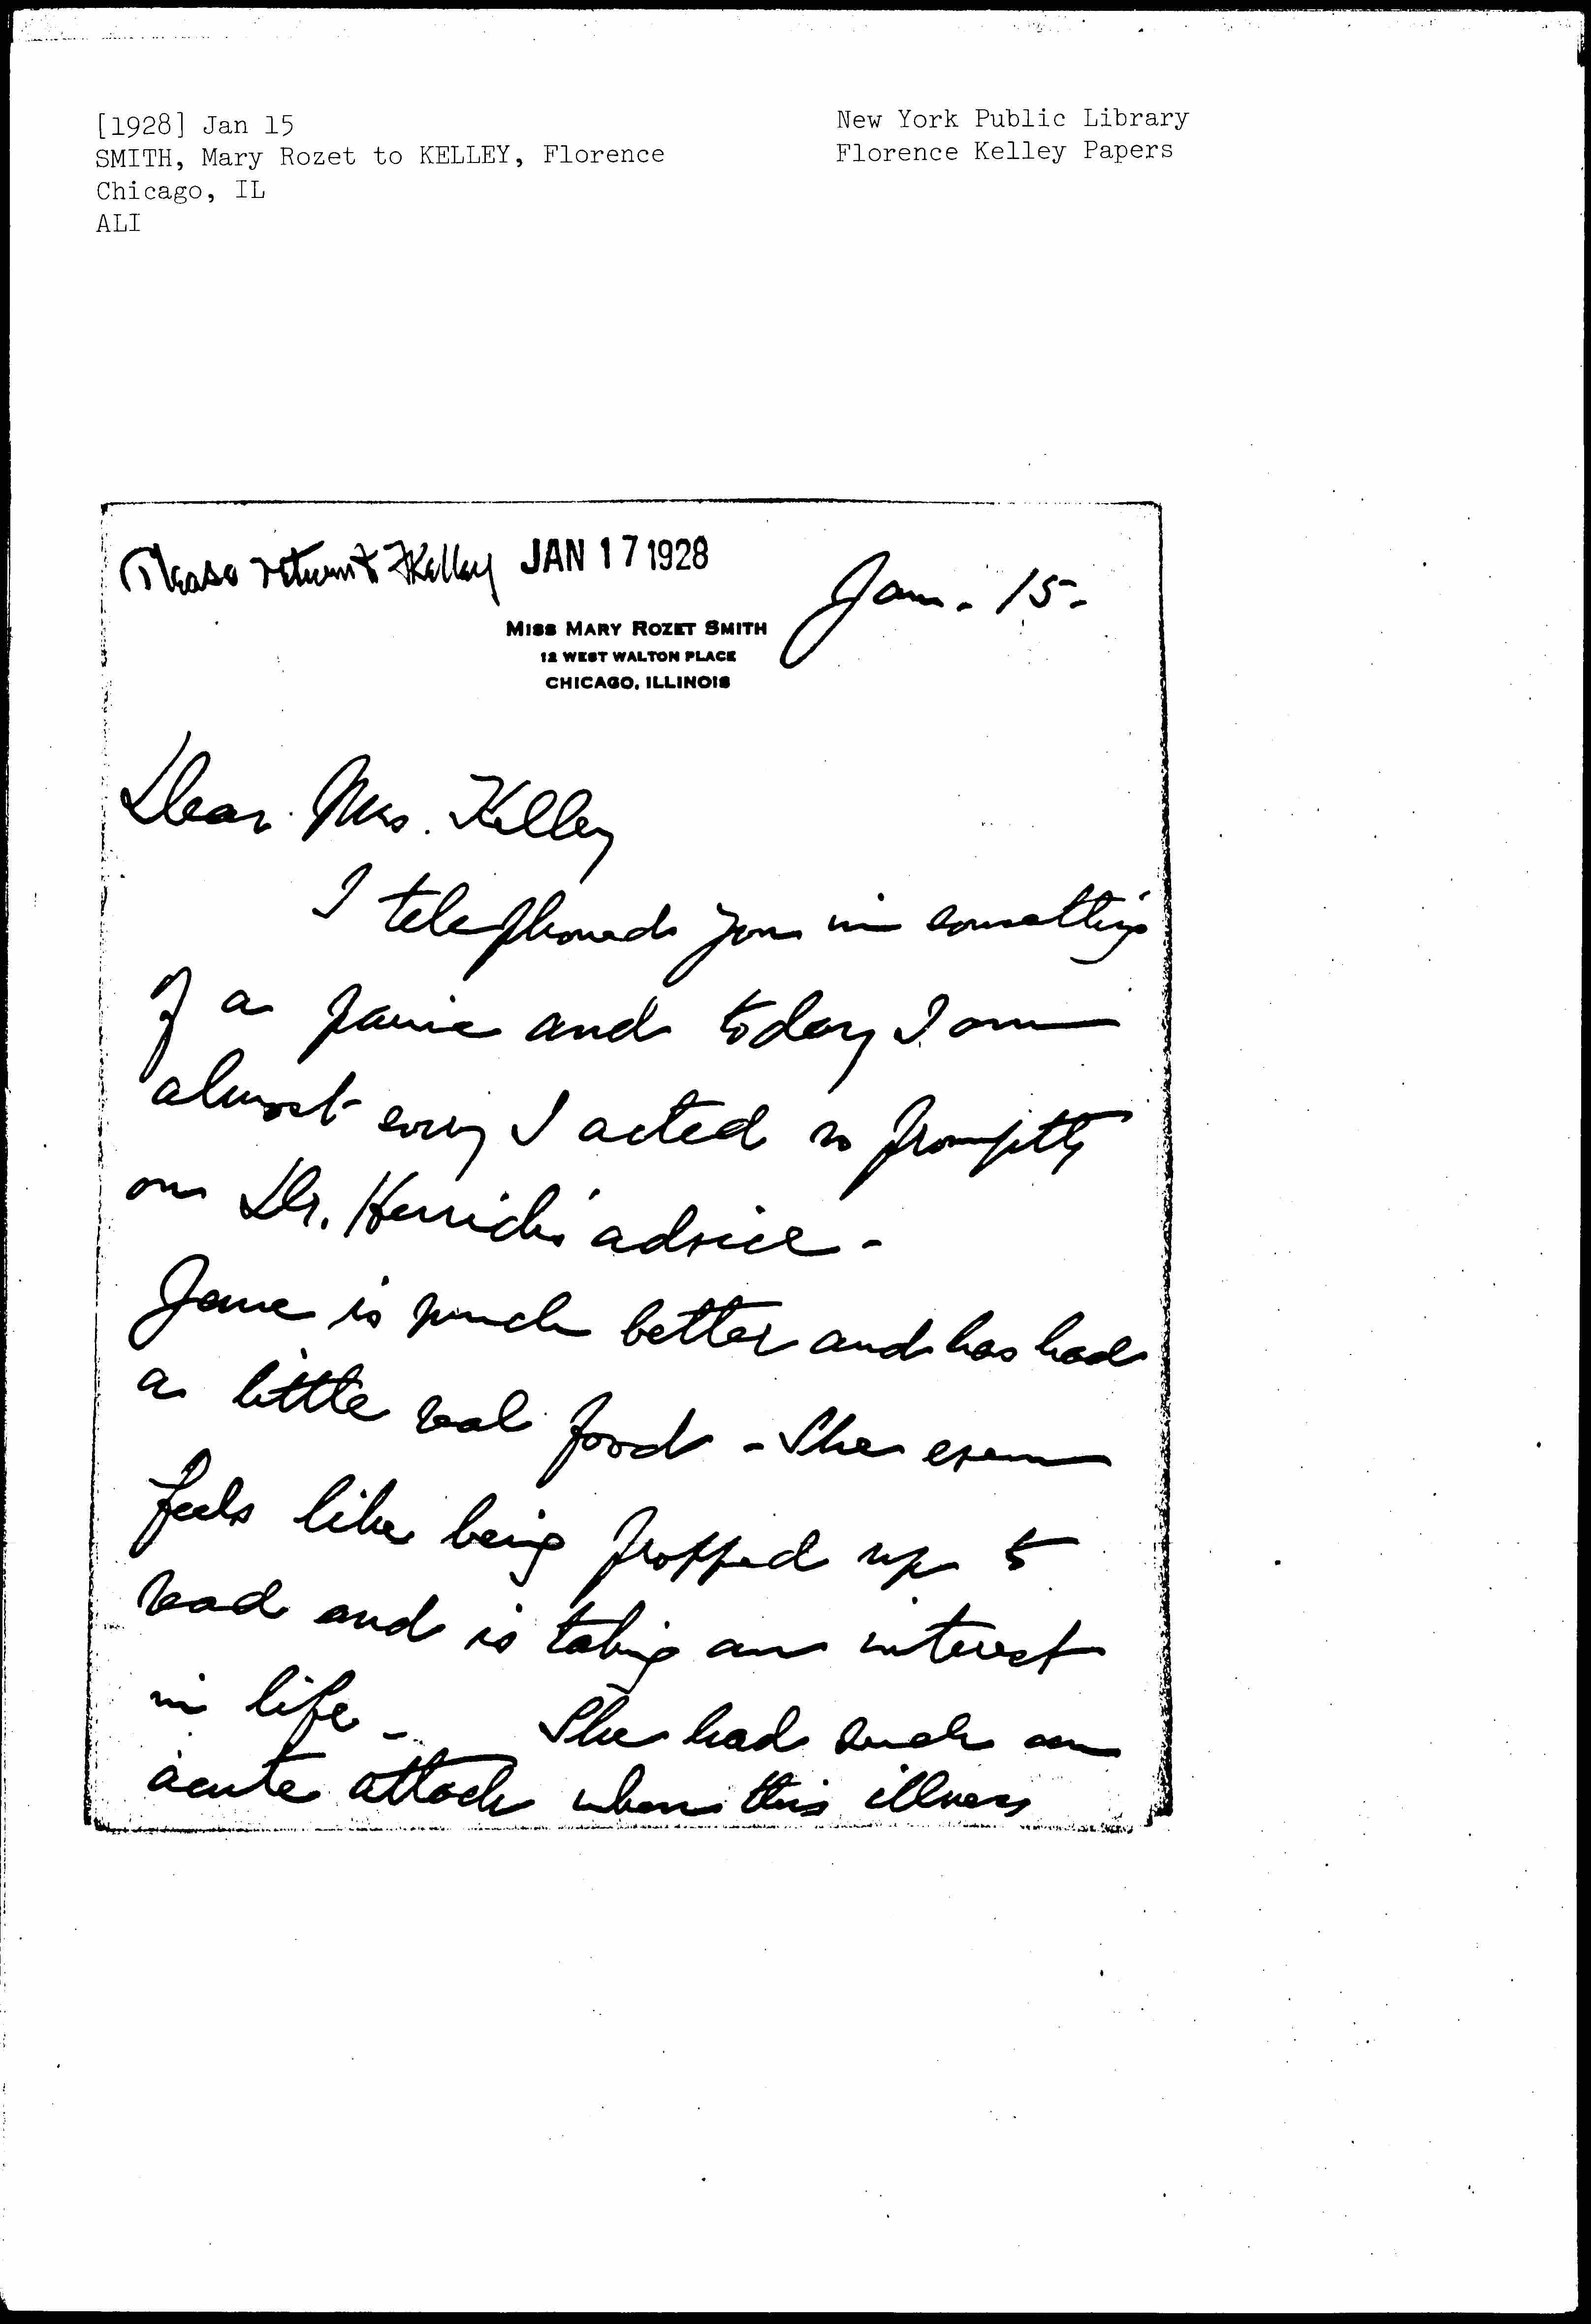 [1928] Jan 15
SMITH, Mary Rozet to KELLEY, Florence
Chicago, IL
ALI
New York Public Library
Florence Kelley Papers
Please return to FKelley JAN 17 1928
Jan. 15.
MISS MARY ROZET SMITH
12 WEST WALTON PLACE
CHICAGO, ILLINOIS
Dear Mrs. Kelley
I telephoned you in something
of a panic and today I am
almost sorry I acted so promptly
on Dr. Herrick's advice -
Jane is much better and has had
a little real food - She even
feels like being propped up to
read and is taking an interest
in life - She had such an
acute attack when this illness